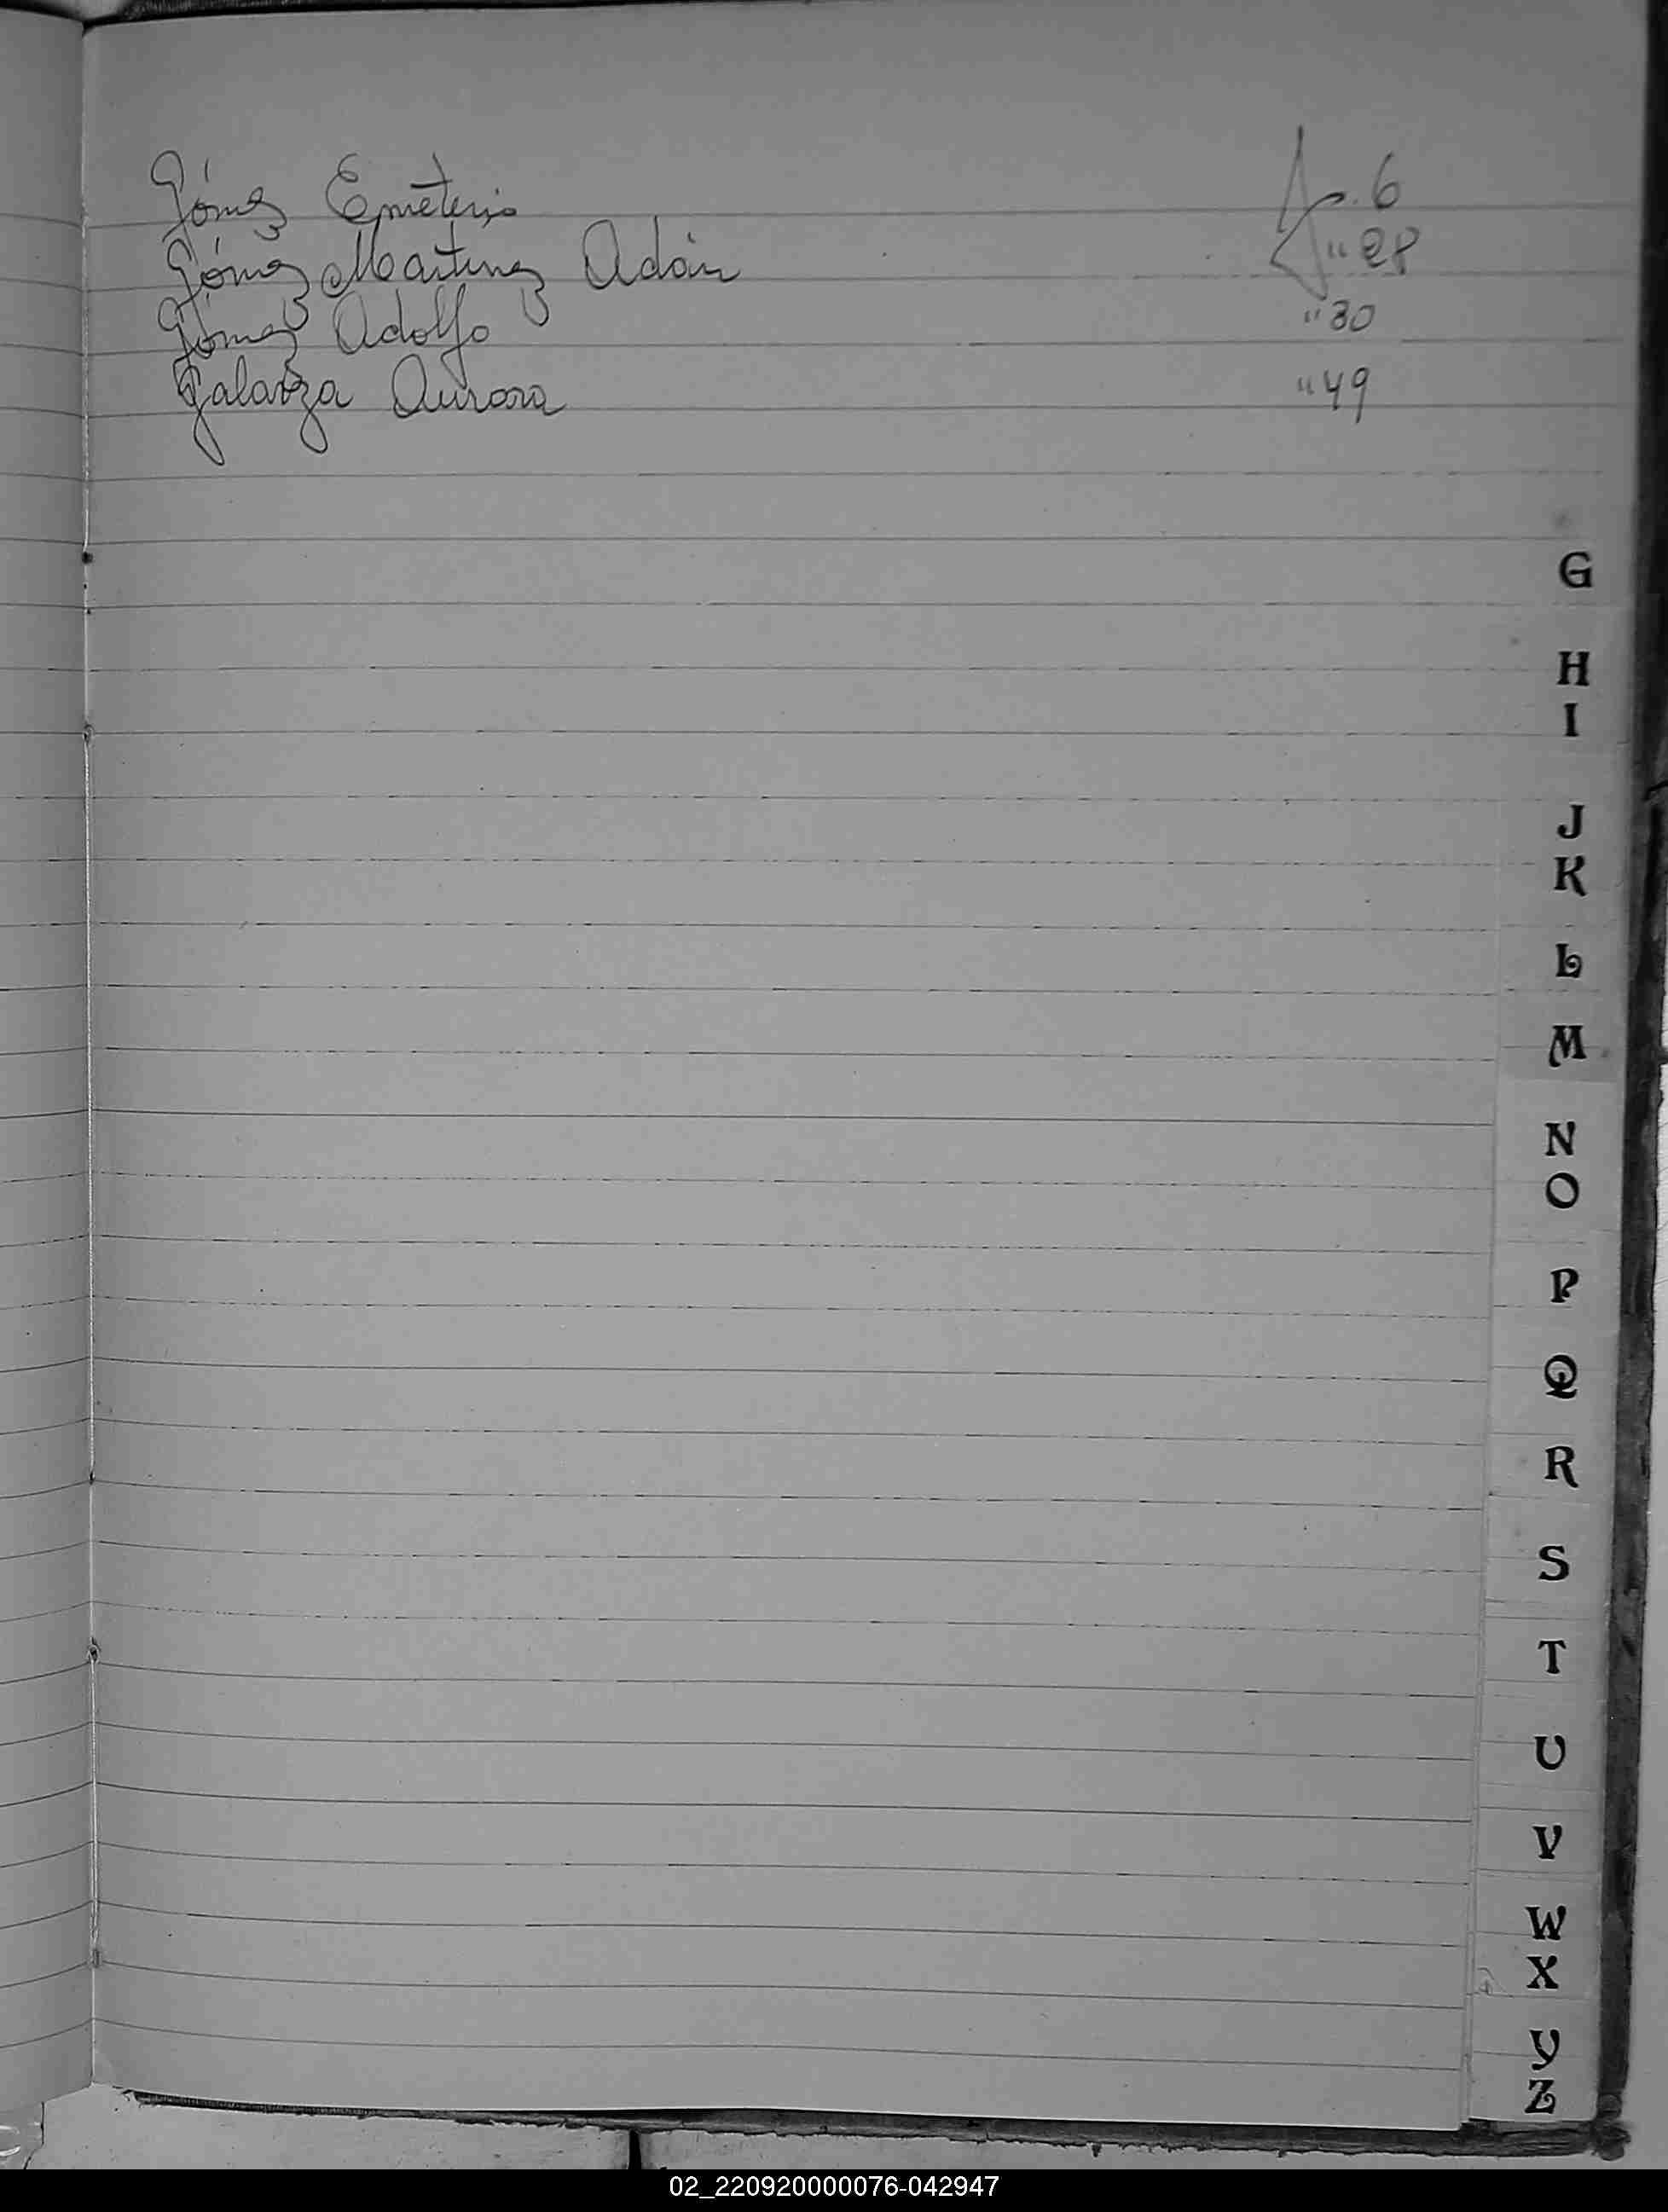 Gómez Emeterio fo. 6
Gómez Martinez Adán " 28
Gómez Adolfo " 30
Galarza Aurora " 49
G
H
I
J
K
L
M
N
O
P
Q
R
S
T
U
V
W
X
Y
Z
02_220920000076-042947